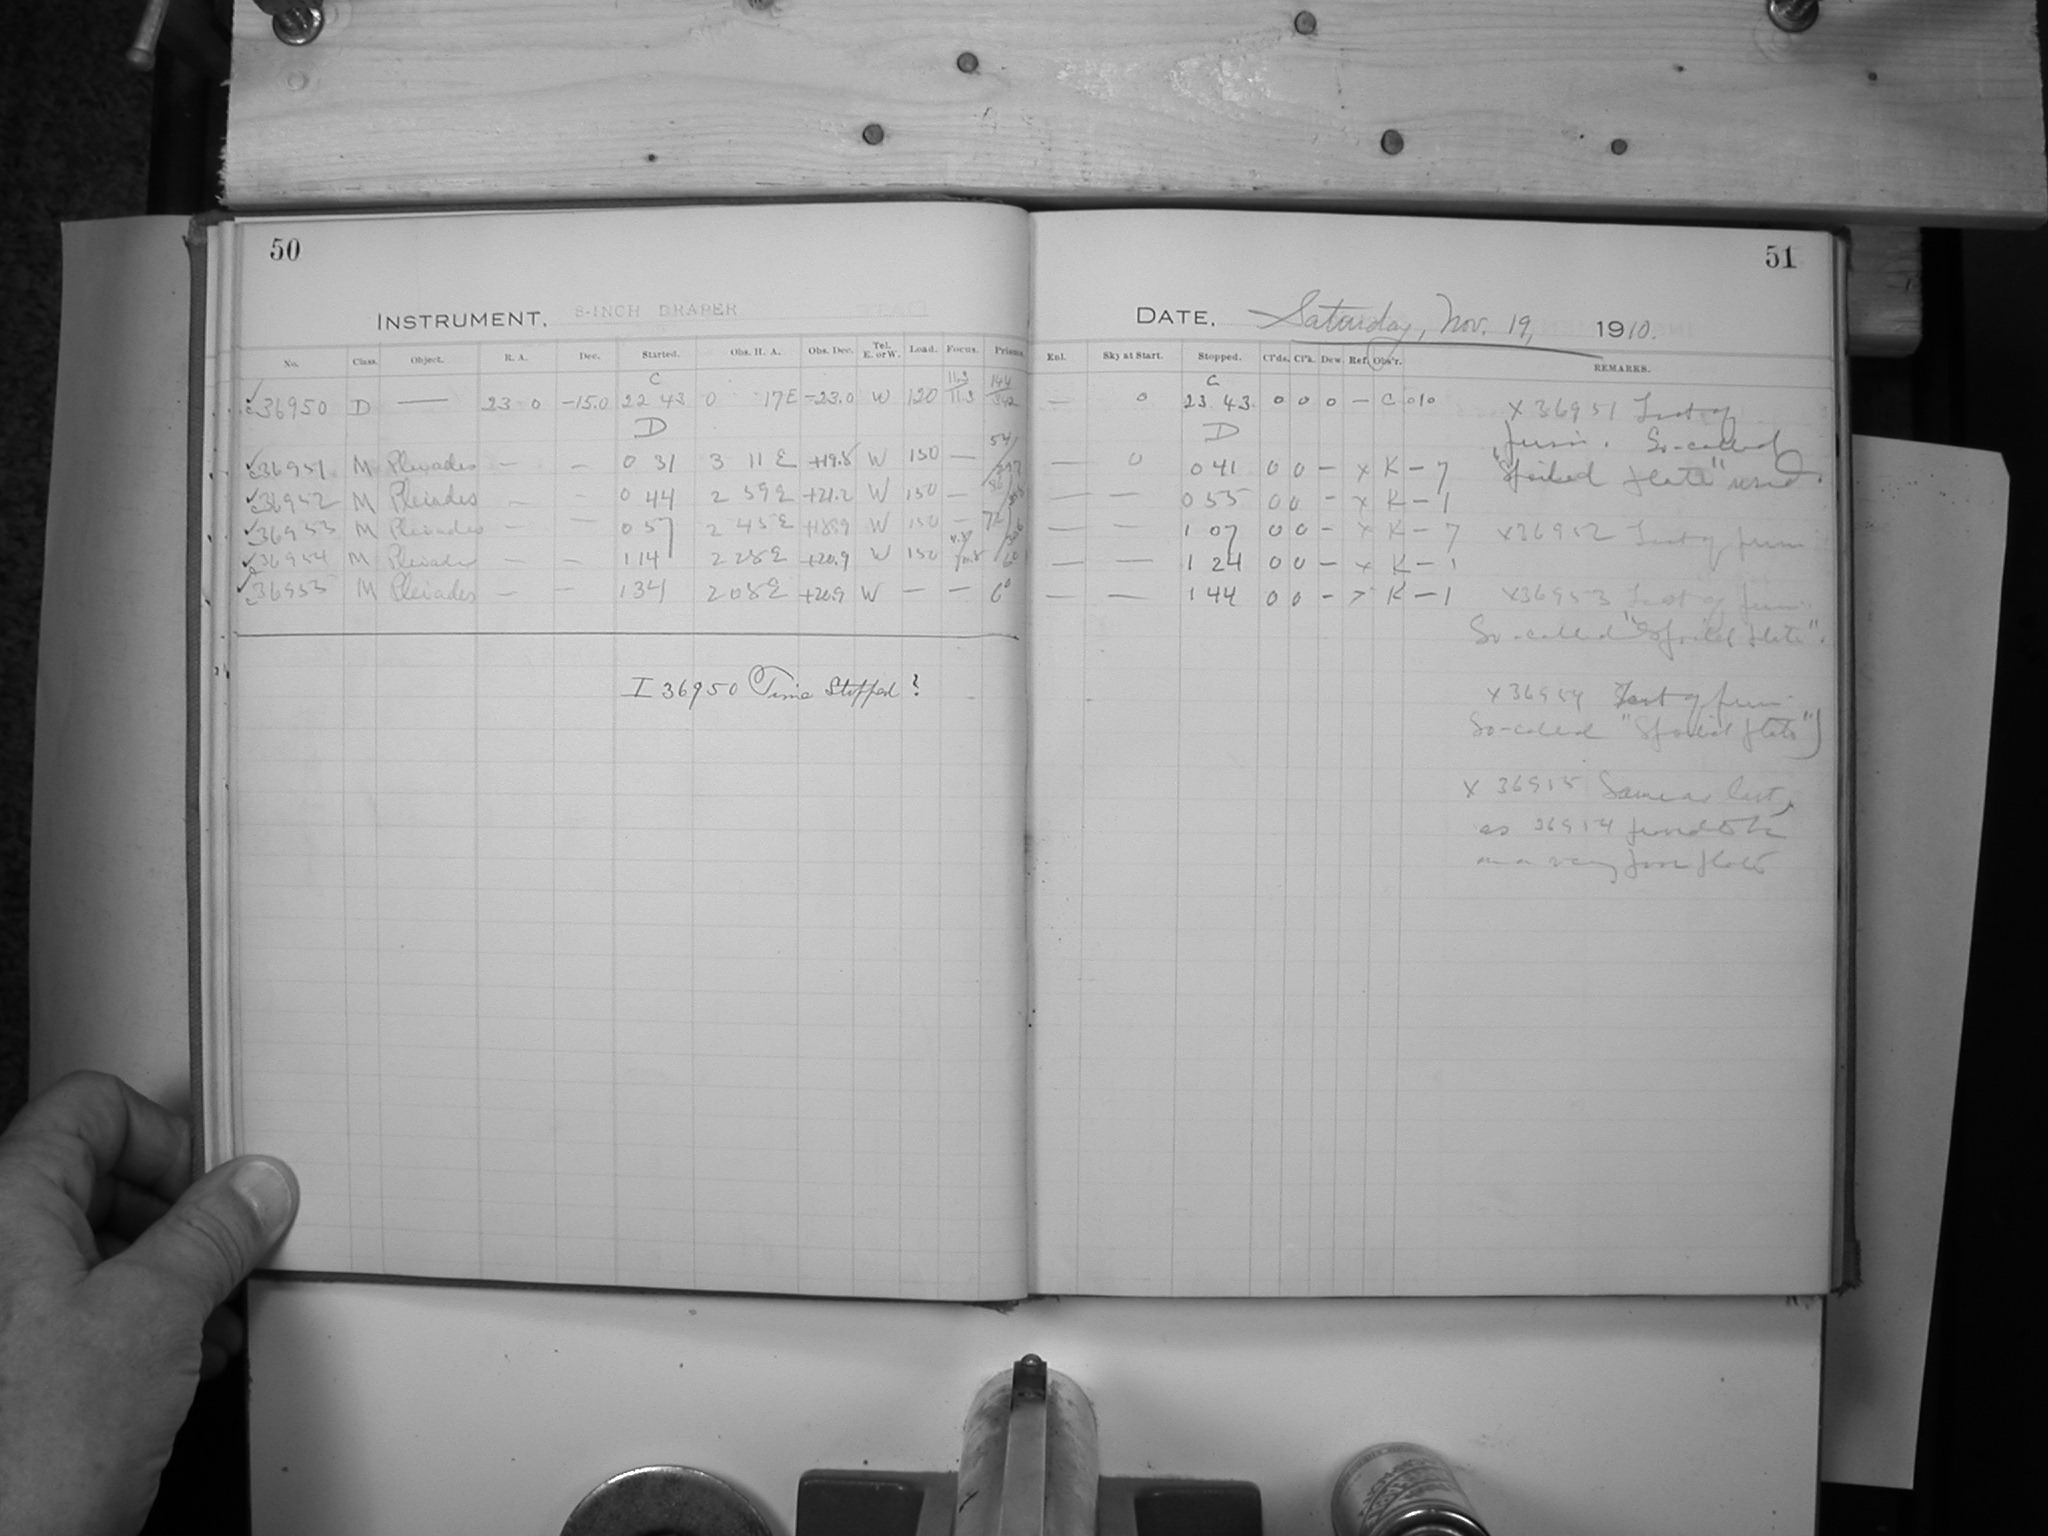 50
51
INSTRUMENT. 8-INCH DRAPER
DATE. Saturday, Nov. 19, 1910.
No. Class. Object. R. A. Dec. Started. Obs. H. A. Obs. Dec. Tel. E. or W. Load. Focus. Prisms.
Enl. Sky at Start. Stopped. Cl'ds. Cl'k. Dew. Ref. Obs'r. REMARKS.
C
C
36950 D — 23 0 -15.0 22 43 0 17 E -23.0 W 120 11.3/11.3 144/342
— 0 23 43 0 0 0 — C 010
D
D
36951 M Pleiades — — 0 31 3 11 E +19.8 W 150 — 54/297
— 0 0 41 0 0 — x K — 7
36952 M Pleiades — — 0 44 2 59 E +21.2 W 150 —
— — 0 55 0 0 — x K — 1
36953 M Pleiades — — 0 57 2 45 E +18.9 W 150 — 72
— — 1 07 0 0 — x K — 7
36954 M Pleiades — — 1 14 2 28 E +20.9 W 150
— — 1 24 0 0 — x K — 1
36955 M Pleiades — — 1 34 2 08 E +20.9 W — — 60
— — 1 44 0 0 — x K — 1
I 36950 Time Stopped ?
x 36951 Test of
prism. So-called
"spoiled plate" used.
x36952 Test of prism
x36953 Test of prism.
So-called "Spoiled plate".
x 36954 Test of prism
So-called "Spoiled plate"
x 36955 Same as last,
as 36954
on a very poor plate